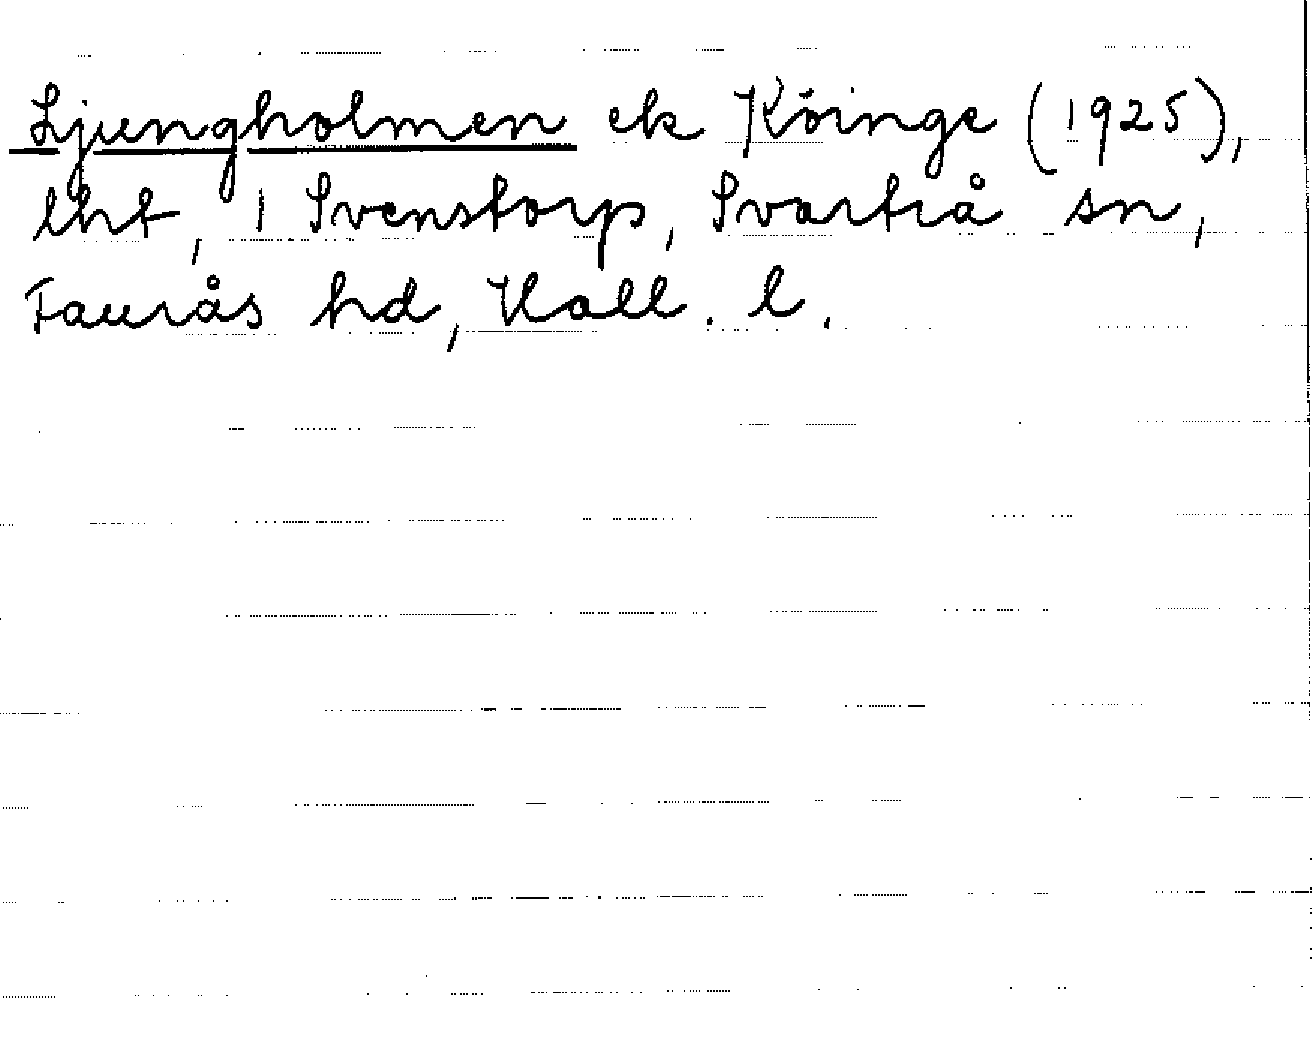 Ljungholmen ek Köinge (1925),
lht, i Svenstorp, Svartrå sn,
Faurås hd, Hall. l.